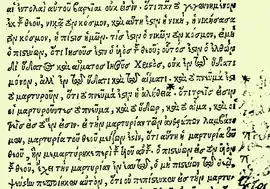 αἱ ἐντολαὶ αὐτοῦ βαρεῖαι οὐκ εἰσίν. ὅτι πᾶν τὸ γεγεννημένον
ἐκ τοῦ θεοῦ, νικᾷ τὸν κόσμον, καὶ αὕτη ἐστὶν ἡ νίκη, ἡ νικήσασα
τὸν κόσμον, ἡ πίστις ἡμῶν. τίς ἐστιν ὁ νικῶν τὸν κόσμον, εἰ μὴ
ὁ πιστεύων, ὅτι Ἰησοῦς ἐστὶν ὁ υἱὸς τοῦ θεοῦ; οὗτός ἐστιν ὁ ἐλθὼν
δι ὕδατος καὶ αἵματος Ἰησοῦς Χριστός, οὐκ ἐν τῷ ὕδατι
μόνον, ἀλλ ἐν τῷ ὕδατι καὶ τῷ αἵματι. καὶ τὸ πνεῦμά ἐστι
τὸ μαρτυροῦν, ὅτι τὸ πνεῦμά ἐστιν ἡ ἀλήθεια. ὅτι τρεῖς εἰσιν
οἱ μαρτυροῦντες τὸ πνεῦμα, καὶ τὸ ὕδωρ, καὶ τὸ αἷμα, καὶ οἱ
τρεῖς εἰς τὸ ἕν εἰσιν. εἰ τὴν μαρτυρίαν τῶν ἀνθρώπων λαμβάνο
μεν, ἡ μαρτυρία τοῦ θεοῦ μείζων ἐστίν, ὅτι αὕτη ἐστὶν ἡ μαρτυρία τοῦ
θεοῦ, ἣν μεμαρτύρηκε περὶ τοῦ υἱοῦ αὐτοῦ. ὁ πιστεύων εἰς τὸν υἱὸν τοῦ
θεοῦ, ἔχει τὴν μαρτυρίαν ἐν ἑαυτῷ, ὁ μὴ πιστεύων τῷ θεῷ,
ψεύστην πεποίηκεν αὐτόν, ὅτι οὐ πεπίστευκεν εἰς τὴν μαρτυρίαν